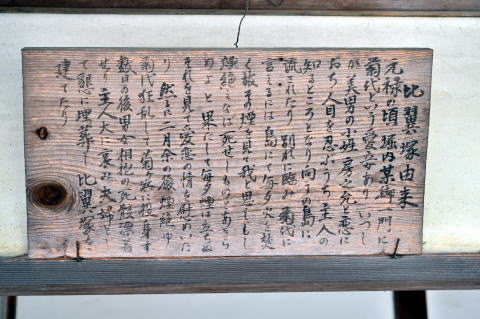 比翼塚由来
元禄の頃 堀内某 一門に
菊代という愛女あり いつし
か美男の小姓房之允と恋に
おち人目を忍ぶうち主人の
知るところとなり向うの島に
流されたり 別れに臨み菊代に
言えるには島にて毎夕火を焚
く故その煙を見て我と思えもし
煙絶えなば死せしものとあきら
めよと 果たして毎夕煙は立ちぬ
それを見て愛恋の情を慰めいた
り 然るに二月余の後煙絶ゆ
菊代狂乱して 菊が 投身す
数日の後男女相抱の死骸漂着
せり 主人大いに哀み夫婦とし
て懇に埋葬し 比翼塚を
建てたり